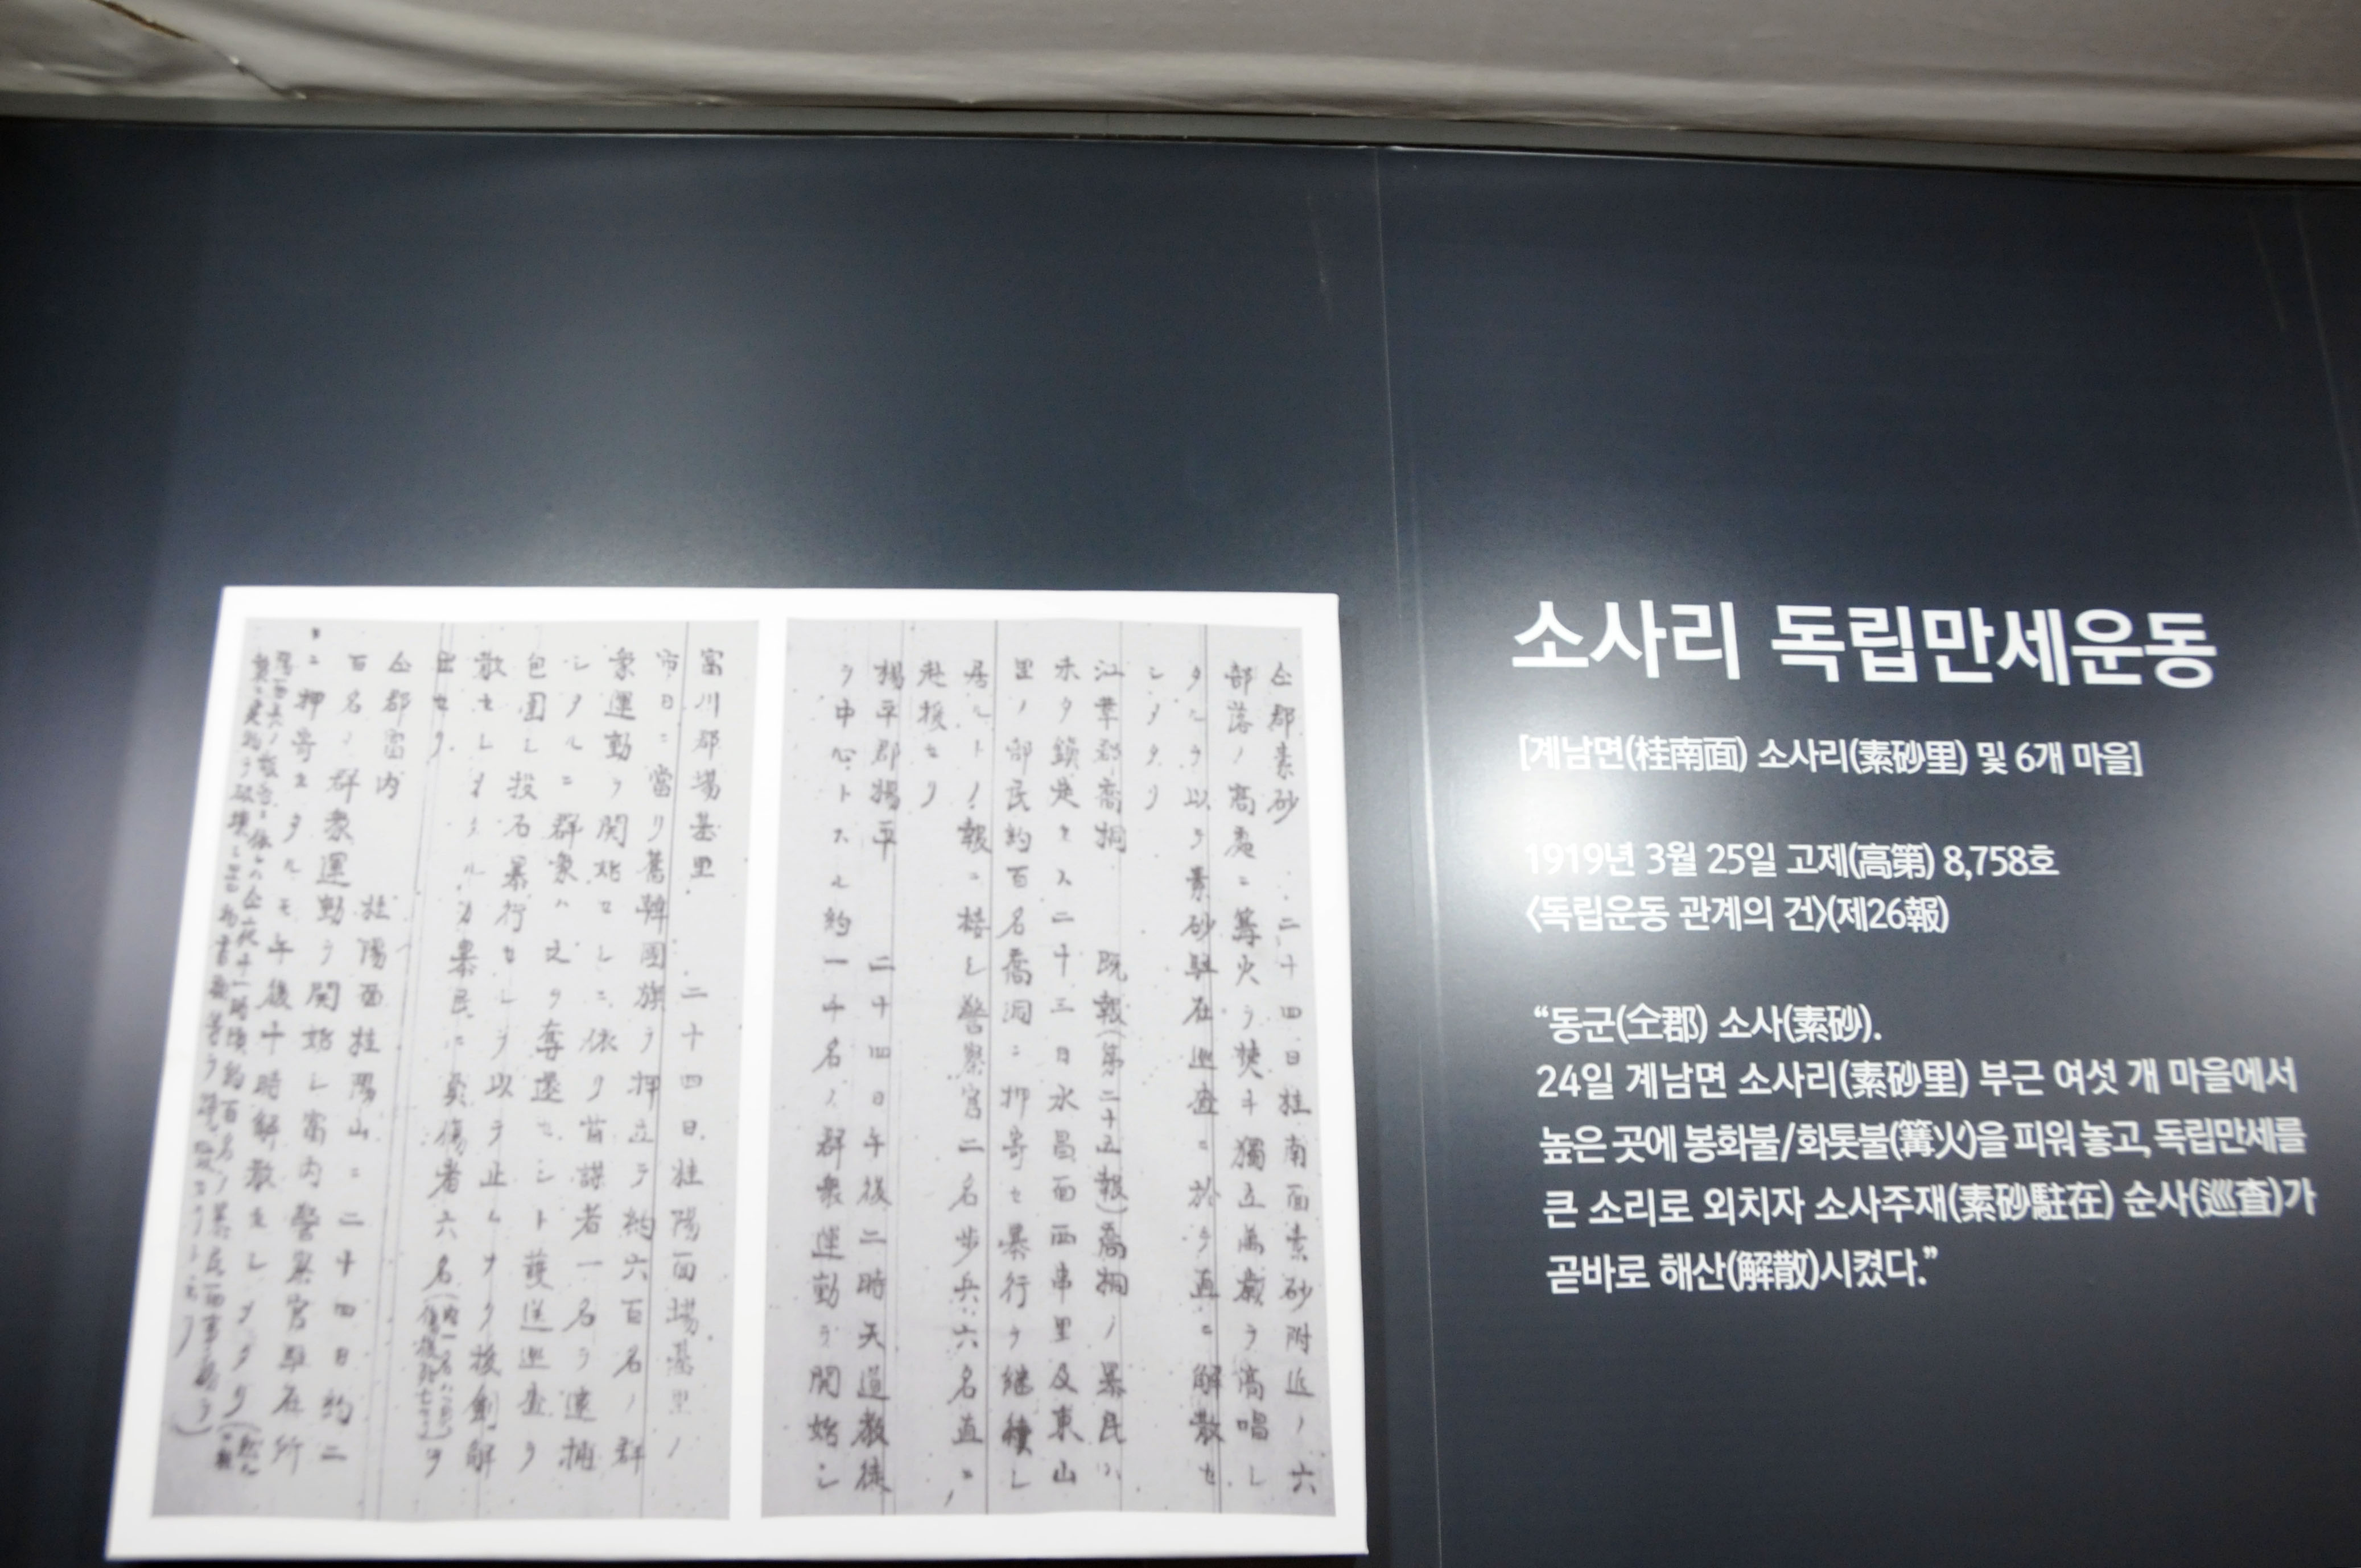 富川郡場基里 二十四日桂陽面場基里ノ
市日ニ當リ舊韓國旗ヲ押立テ約六百名ノ群
衆運動ヲ開始セシニ依リ首謀者一名ヲ逮捕
シタルニ群衆ハ之ヲ奪還セント護送巡査ヲ
包圍シ投石暴行セシヲ以テ止ムナク拔劍解
散セシメタルカ暴民ニ負傷者六名ヲ
出セリ
仝郡富内 桂陽面桂陽山ニ二十四日約二
百名ノ群衆運動ヲ開始シ富内警察官駐在所
ニ押寄セタルモ午後十時解散セシメタリ
仝郡素砂 二十四日桂南面素砂附近ノ六
部落ノ高處ニ篝火ヲ焚キ獨立萬歲ヲ高唱シ
タルヲ以テ素砂駐在巡査ニ於テ直ニ解散セ
シメタリ
江華郡喬桐 既報(第二十五報)喬桐ノ暴民ハ
未タ鎮定セス二十三日水晶面西串里及東山
里ノ部民約百名喬洞ニ押寄セ暴行ヲ継續シ
居ルトノ報ニ接シ警察官二名步兵六名直ニ
赴援セリ
楊平郡楊平 二十四日午後二時天道教徒
ヲ中心トスル約一千名ノ群衆運動ヲ開始シ
소사리 독립만세운동
[계남면(桂南面) 소사리(素砂里) 및 6개 마을]
1919년 3월 25일 고제(高第) 8,758호
〈독립운동 관계의 건〉(제26報)
“동군(仝郡) 소사(素砂).
24일 계남면 소사리(素砂里) 부근 여섯 개 마을에서
높은 곳에 봉화불/화톳불(篝火)을 피워 놓고, 독립만세를
큰 소리로 외치자 소사주재(素砂駐在) 순사(巡査)가
곧바로 해산(解散)시켰다.”